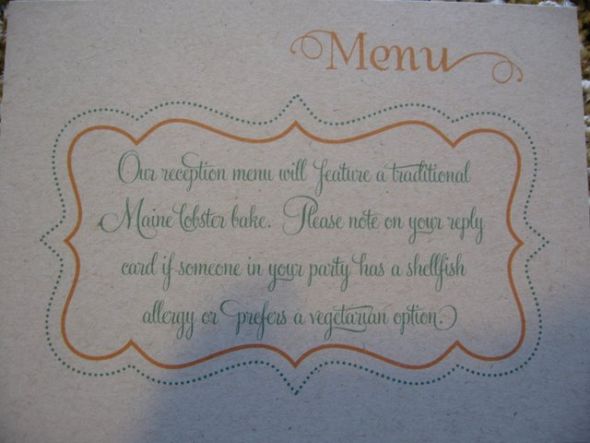 Menu
Our reception menu will feature a traditional
Maine lobster bake. Please note on your reply
card if someone in your party has a shellfish
allergy or prefers a vegetarian option.